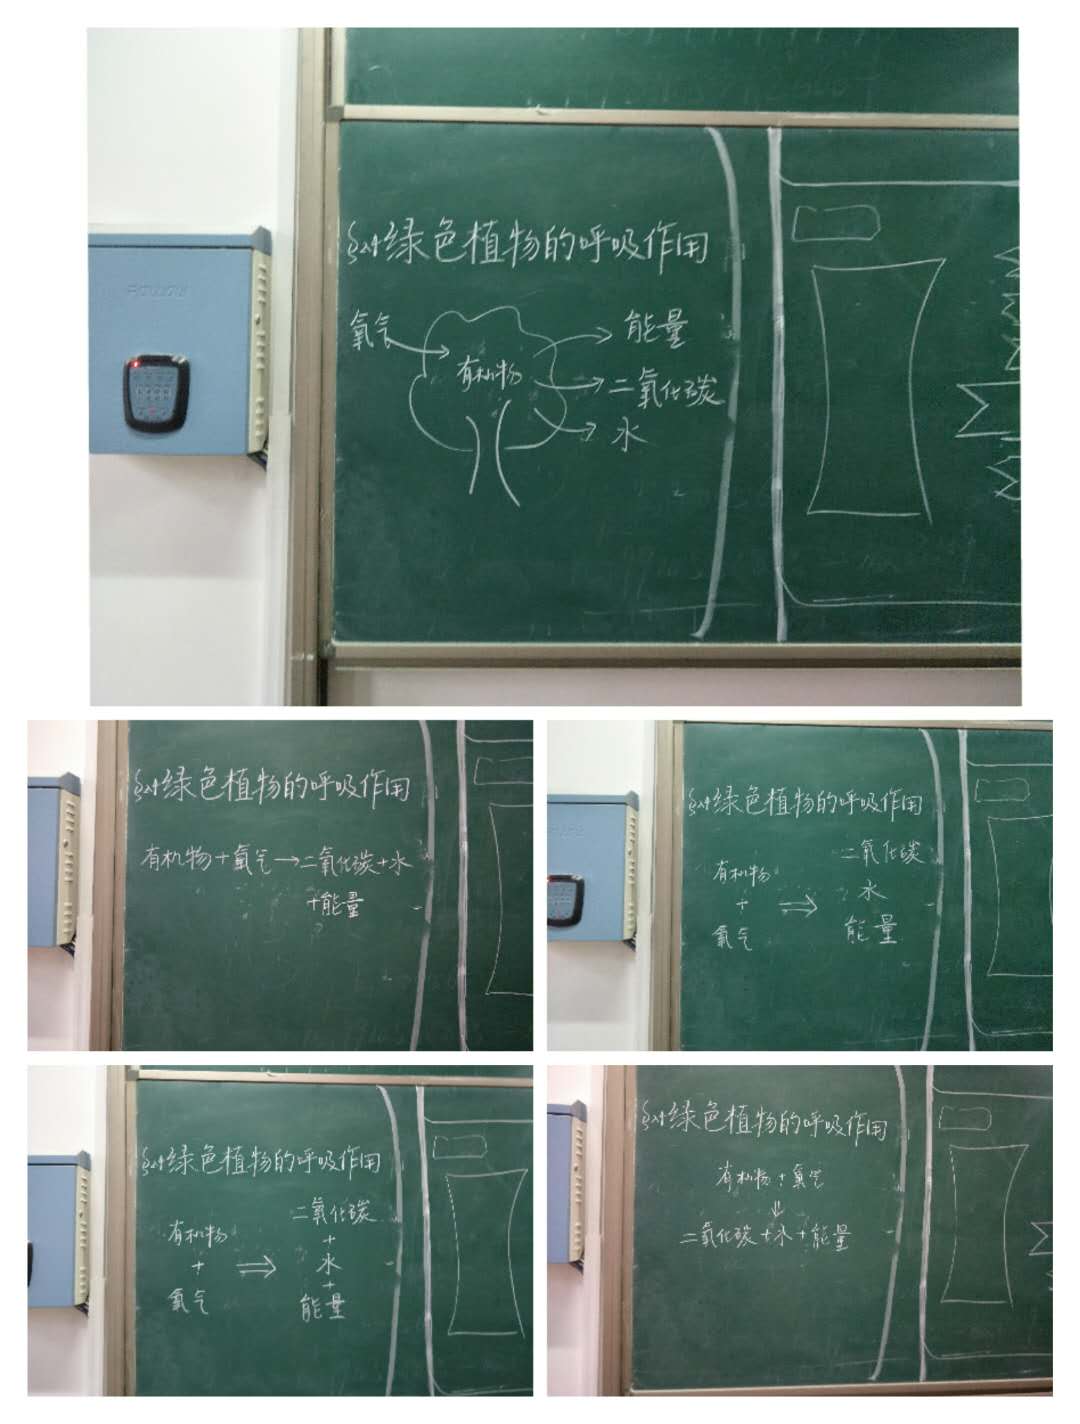 §2.4绿色植物的呼吸作用
氧气
有机物
能量
二氧化碳
水
§2.4绿色植物的呼吸作用
有机物+氧气→二氧化碳+水
+能量
§2.4绿色植物的呼吸作用
有机物
+
氧气
⇒
二氧化碳
水
能量
§2.4绿色植物的呼吸作用
有机物
+
氧气
⇒
二氧化碳
+
水
+
能量
§2.4绿色植物的呼吸作用
有机物+氧气
⇓
二氧化碳+水+能量